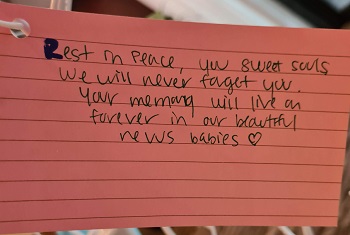 Rest in Peace, you sweet souls
We will never forget you.
Your memory will live on
forever in our beautiful
news babies ♡